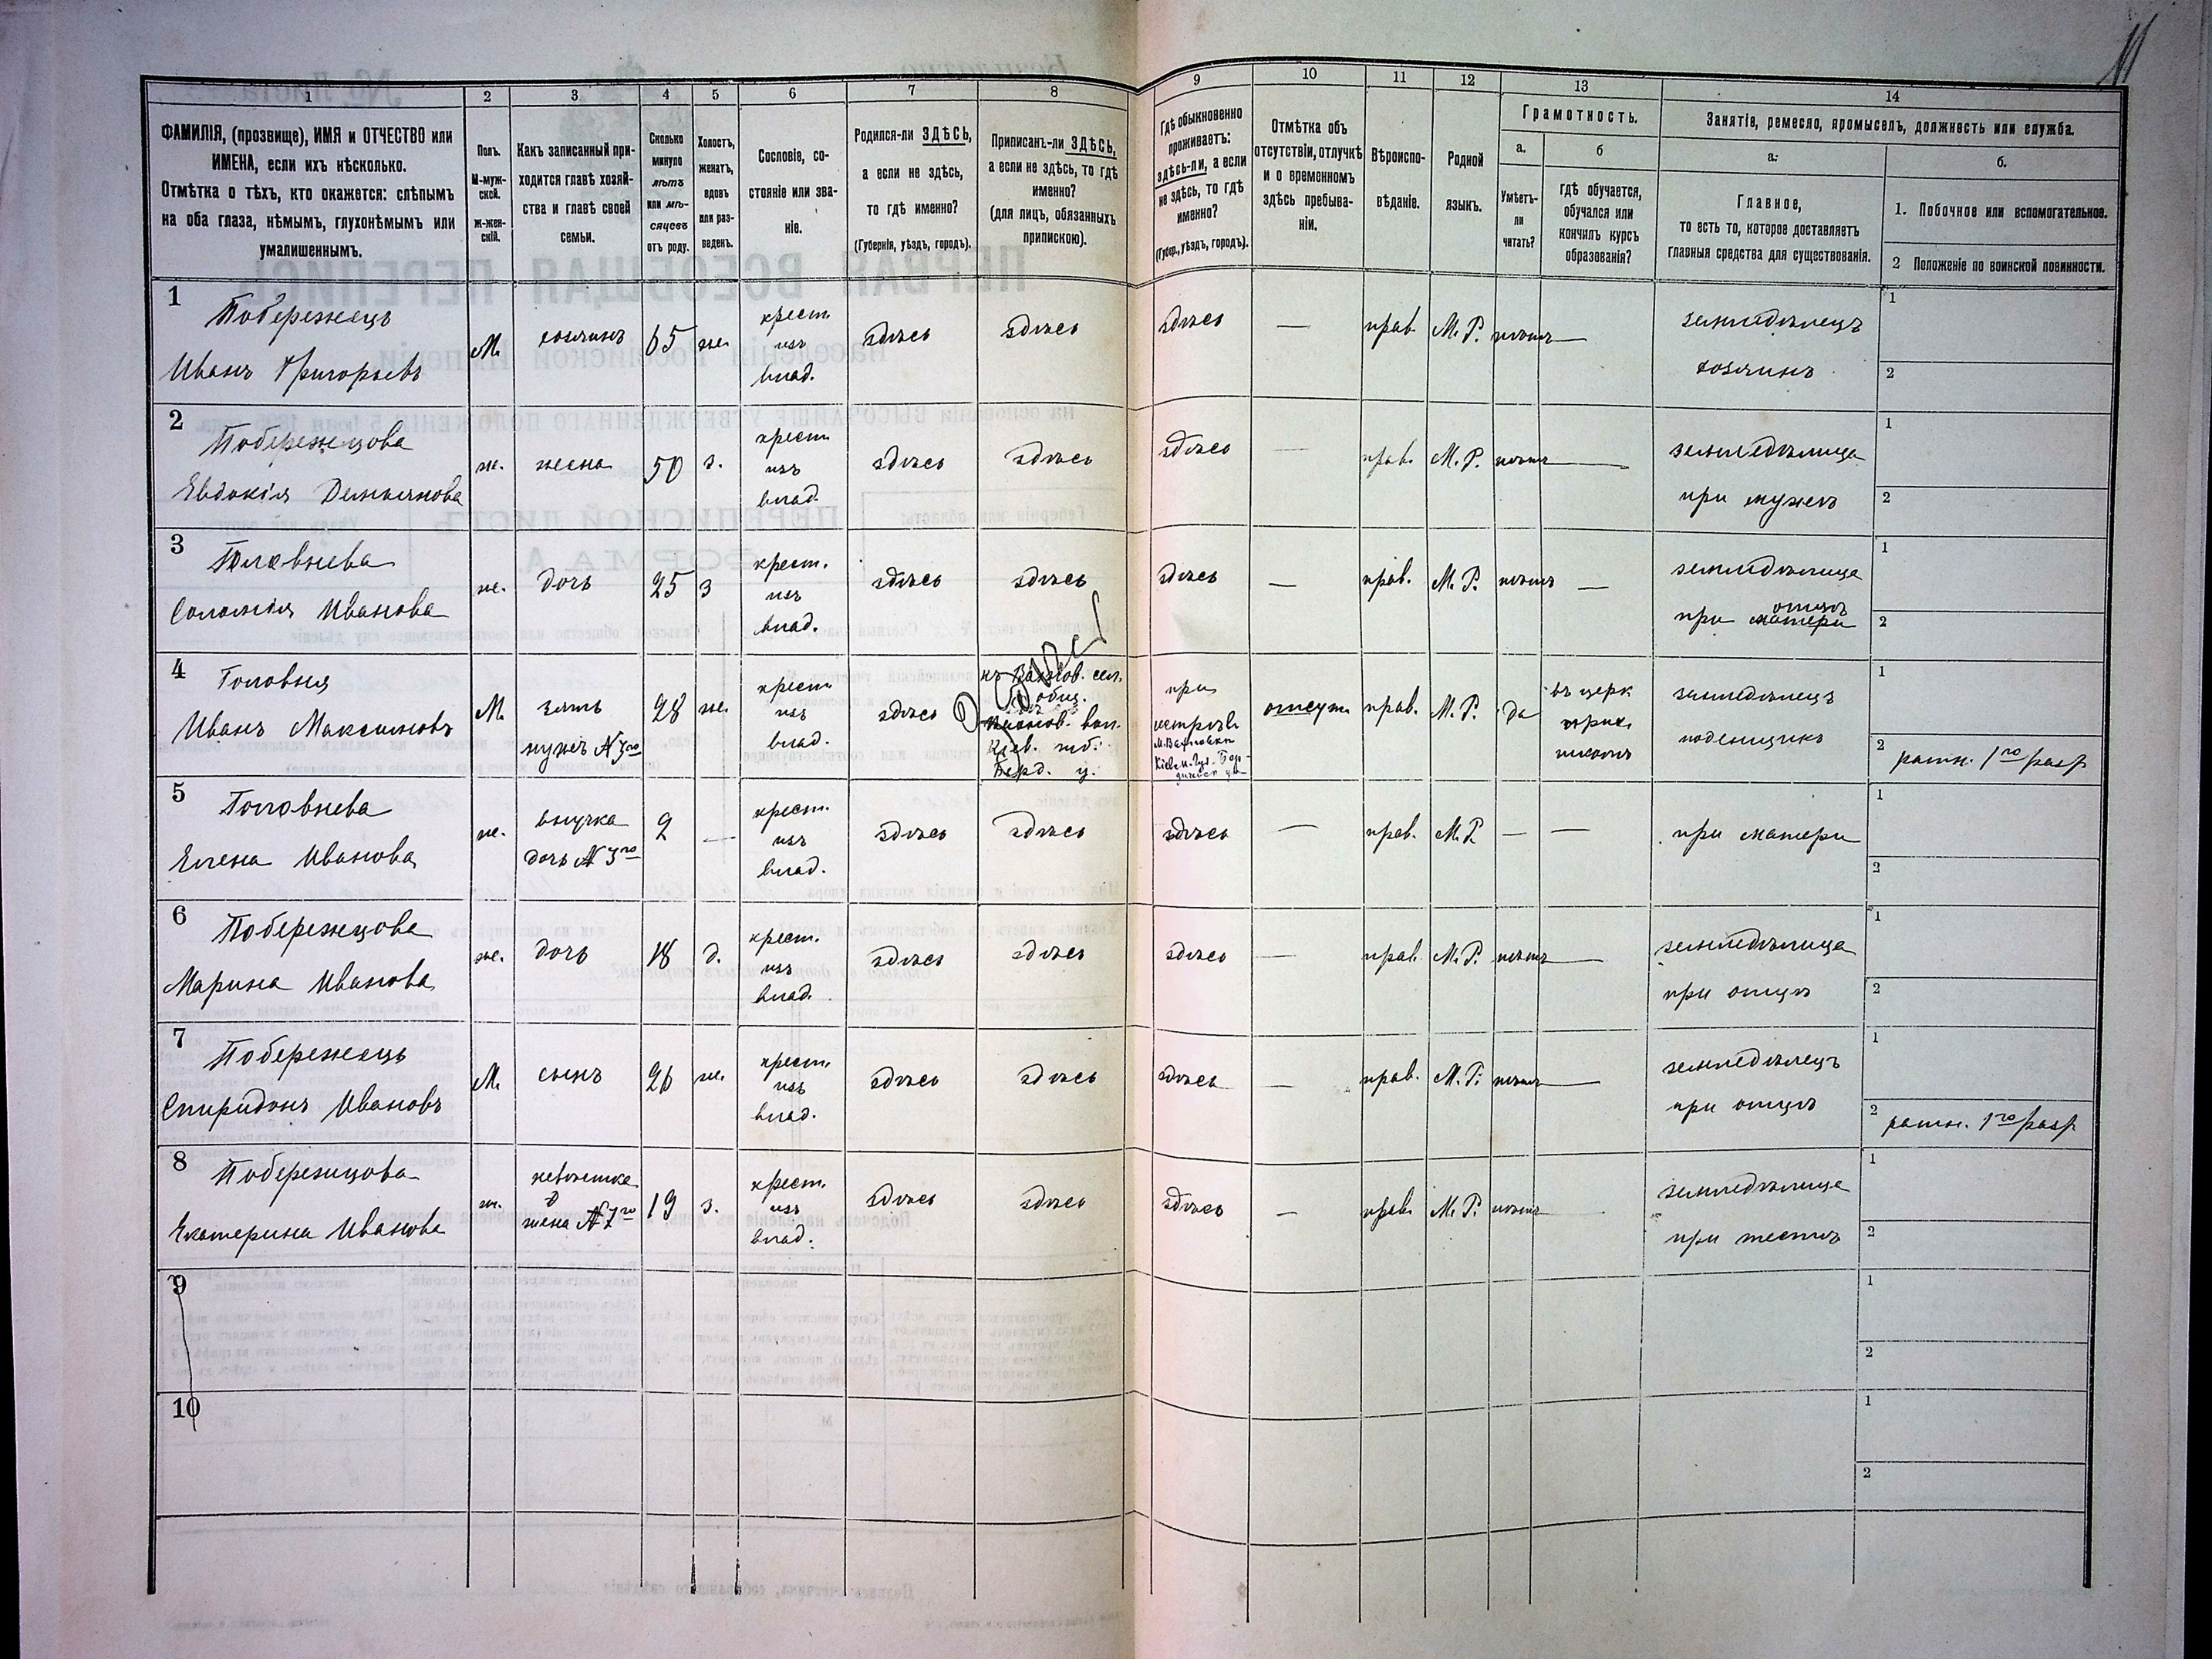 11
1
2
3
4
5
6
7
8
9
10
11
12
13
14
ФАМИЛІЯ, (прозвище), ИМЯ и ОТЧЕСТВО или
ИМЕНА, если ихъ нѣсколько.
Отмѣтка о тѣхъ, кто окажется: слѣпымъ
на оба глаза, нѣмымъ, глухонѣмымъ или
умалишеннымъ.
Полъ.
М-муж-
ской.
Ж-жен-
скій.
Какъ записанный при-
ходится главѣ хозяй-
ства и главѣ своей
семьи.
Сколько
минуло
лѣтъ
или мѣ-
сяцевъ
отъ роду.
Холостъ,
женатъ,
вдовъ
или раз-
веденъ.
Сословіе, со-
стояніе или зва-
ніе.
Родился-ли ЗДѢСЬ,
а если не здѣсь,
то гдѣ именно?
(Губернія, уѣздъ, городъ).
Приписанъ-ли ЗДѢСЬ,
а если не здѣсь, то гдѣ
именно?
(для лицъ, обязанныхъ
припискою).
Гдѣ обыкновенно
проживаетъ:
здѣсь-ли, а если
не здѣсь, то гдѣ
именно?
(Губер., уѣздъ, городъ).
Отмѣтка объ
отсутствіи, отлучкѣ
и о временномъ
здѣсь пребыва-
ніи.
Вѣроиспо-
вѣданіе.
Родной
языкъ.
Грамотность.
а.
б
Умѣетъ-
ли
читать?
гдѣ обучается,
обучался или
кончилъ курсъ
образованія?
Занятіе, ремесло, промыселъ, должность или служба.
а.
б.
Главное,
то есть то, которое доставляетъ
главныя средства для существованія.
1. Побочное или вспомогательное.
2 Положеніе по воинской повинности.
1
Побережецъ
Иванъ Григорьевъ
М.
хозяинъ
65
же.
крест.
изъ
влад.
здѣсь
здѣсь
здѣсь
—
прав.
М. Р.
нѣтъ
—
земледѣлецъ
хозяинъ
1
2
2
Побережцова
Евдокія Демьянова
же.
жена
50
з.
крест.
изъ
влад.
здѣсь
здѣсь
здѣсь
—
прав.
М. Р.
нѣтъ
—
земледѣлица
при мужѣ
1
2
3
Головнева
Соломія Иванова
же.
дочь
25
з
крест.
изъ
влад.
здѣсь
здѣсь
здѣсь
—
прав.
М. Р.
нѣтъ
—
земледѣлица
отцѣ
при матери
1
2
4
Головня
Иванъ Максимовъ
М.
зять
мужъ № 3го
28
же.
крест.
изъ
влад.
здѣсь
сел.
общ.
вол.
Кіев. губ.
Берд. у.
здѣсь
при
отсут.
прав.
М. Р.
да
въ церк
прих.
школѣ
земледѣлецъ
поденщикъ
1
2
ратн. 1го разр
5
Головнева
Елена Иванова
же.
внучка
дочь № 3го
2
—
крест.
изъ
влад.
здѣсь
здѣсь
здѣсь
—
прав.
М. Р.
—
—
при матери
1
2
6
Побережцова
Марина Иванова
же.
дочь
18
д.
крест.
изъ
влад.
здѣсь
здѣсь
здѣсь
—
прав.
М. Р.
нѣтъ
—
земледѣлица
при отцѣ
1
2
7
Побережецъ
Спиридонъ Ивановъ
М.
сынъ
26
же.
крест.
изъ
влад.
здѣсь
здѣсь
здѣсь
—
прав.
М. Р.
нѣтъ
—
земледѣлецъ
при отцѣ
1
2
ратн. 1го разр
8
Побережцова
Екатерина Иванова
ж.
невѣстка
жена № 7го
19
з.
крест.
изъ
влад.
здѣсь
здѣсь
здѣсь
—
прав.
М. Р.
нѣтъ
—
земледѣлица
при тестѣ
1
2
9
1
2
10
1
2